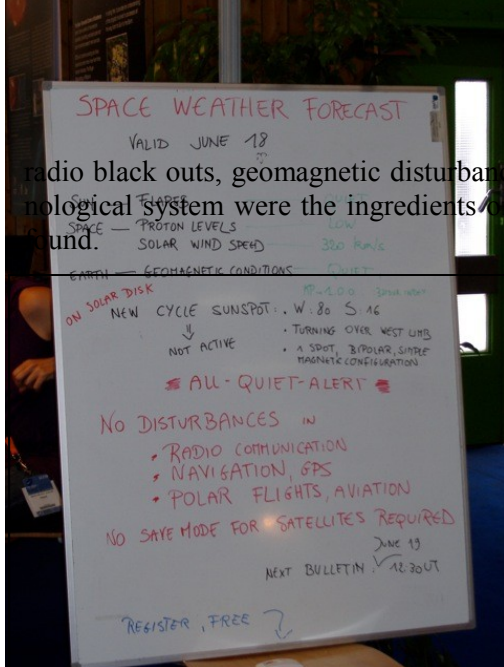 SPACE WEATHER FORECAST
VALID JUNE 18
radio black outs, geomagnetic disturban
SUN — FLARES QUIET
nological system were the ingredients o
SPACE — PROTON LEVELS LOW
SOLAR WIND SPEED 320 km/s
found.
EARTH — GEOMAGNETIC CONDITIONS — QUIET
ON SOLAR DISK
NEW CYCLE SUNSPOT: • W: 80 S: 16
⇓ • TURNING OVER WEST LIMB
NOT ACTIVE • 1 SPOT, BIPOLAR, SIMPLE
MAGNETIC CONFIGURATION
ALL-QUIET-ALERT
NO DISTURBANCES IN
• RADIO COMMUNICATION
• NAVIGATION, GPS
• POLAR FLIGHTS, AVIATION
NO SAVE MODE FOR SATELLITES REQUIRED
JUNE 19
NEXT BULLETIN: 12.30 UT
REGISTER, FREE